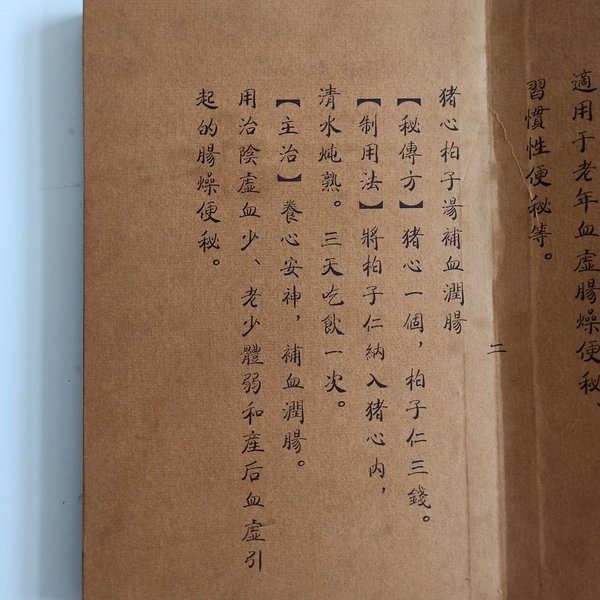 適用于老年血虛腸燥便秘、
習慣性便秘等。
二
猪心柏子湯補血潤腸
【秘傳方】猪心一個，柏子仁三錢。
【制用法】將柏子仁納入猪心内，
清水炖熟。三天吃飲一次。
【主治】養心安神，補血潤腸。
用治陰虛血少、老少體弱和產后血虛引
起的腸燥便秘。